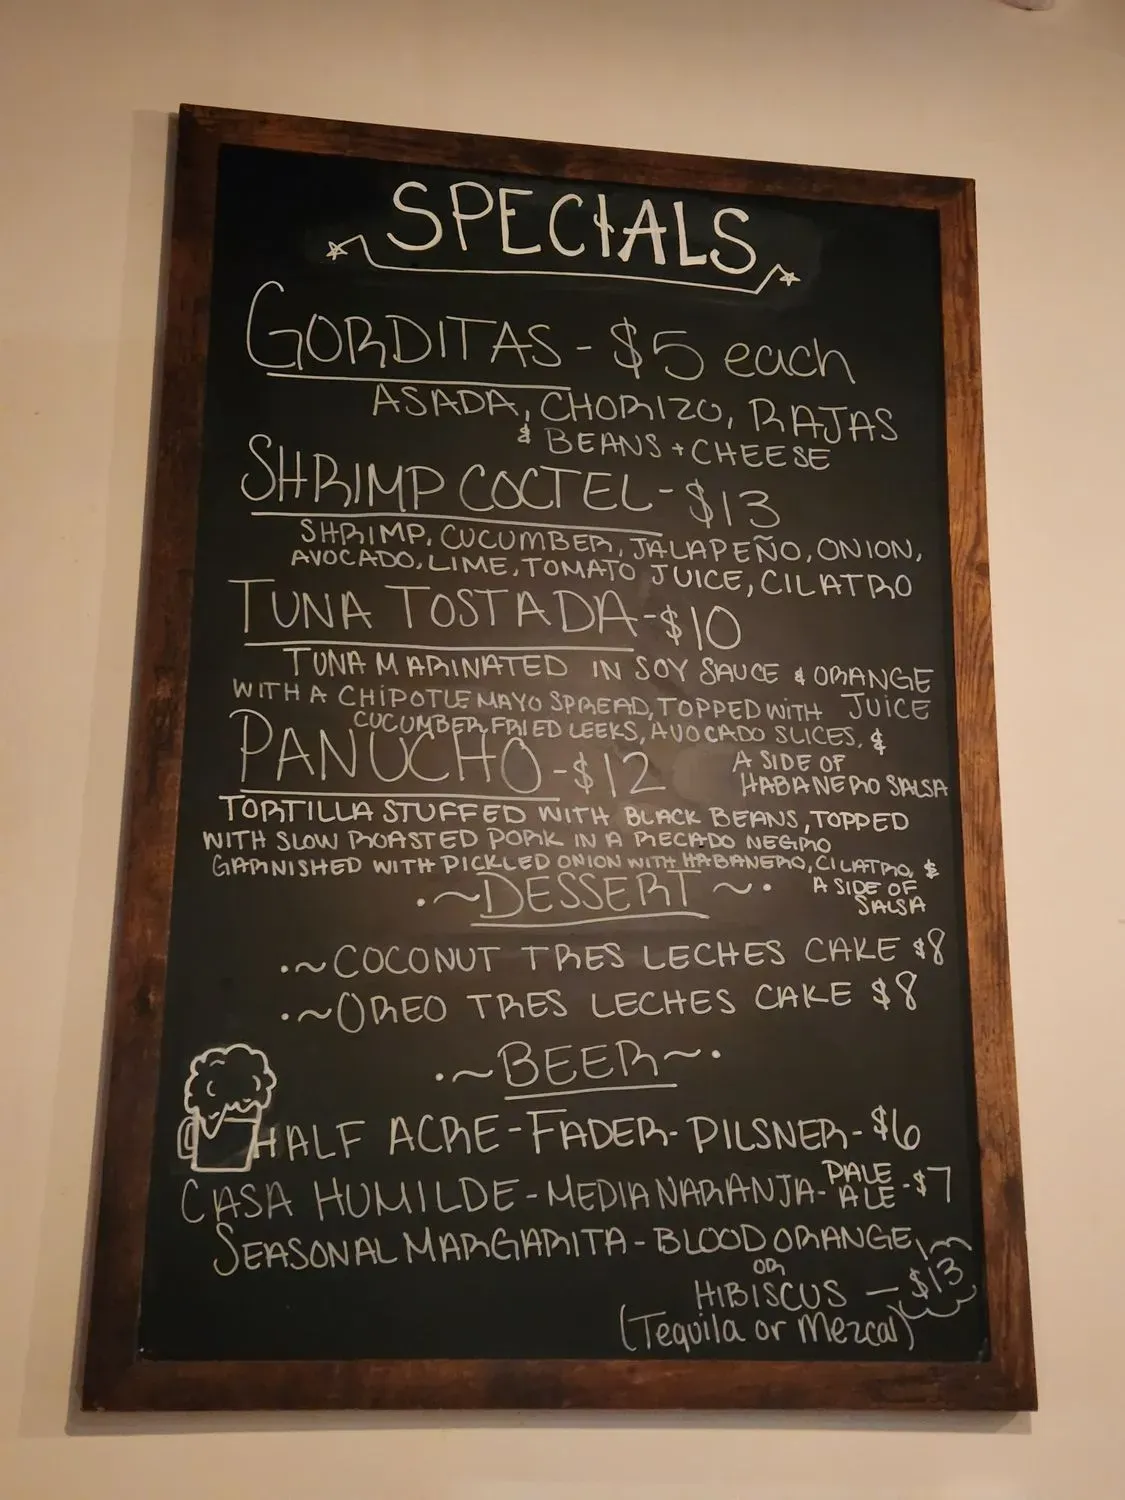 SPECIALS
GORDITAS - $5 each
ASADA, CHORIZO, RAJAS
& BEANS + CHEESE
SHRIMP COCTEL - $13
SHRIMP, CUCUMBER, JALAPEÑO, ONION,
AVOCADO, LIME, TOMATO JUICE, CILATRO
TUNA TOSTADA - $10
TUNA MARINATED IN SOY SAUCE & ORANGE
JUICE
WITH A CHIPOTLE MAYO SPREAD, TOPPED WITH
CUCUMBER, FRIED LEEKS, AVOCADO SLICES, &
A SIDE OF
HABANERO SALSA
PANUCHO - $12
TORTILLA STUFFED WITH BLACK BEANS, TOPPED
WITH SLOW ROASTED PORK IN A RECADO NEGRO
GARNISHED WITH PICKLED ONION WITH HABANERO, CILATRO, &
A SIDE OF
SALSA
·~DESSERT~·
·~COCONUT TRES LECHES CAKE $8
·~OREO TRES LECHES CAKE $8
·~BEER~·
HALF ACRE - FADER - PILSNER - $6
CASA HUMILDE - MEDIA NARANJA - PALE ALE - $7
SEASONAL MARGARITA - BLOOD ORANGE
OR
HIBISCUS — $13
(Tequila or Mezcal)